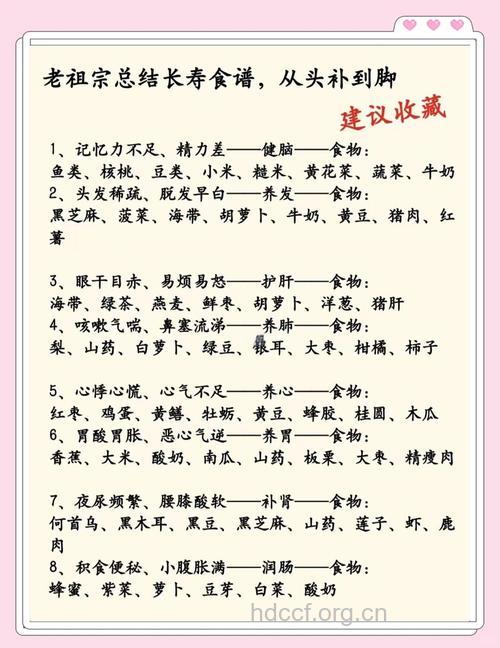 老祖宗总结长寿食谱，从头补到脚
建议收藏
1、记忆力不足、精力差——健脑——食物：
鱼类、核桃、豆类、小米、糙米、黄花菜、蔬菜、牛奶
2、头发稀疏、脱发早白——养发——食物：
黑芝麻、菠菜、海带、胡萝卜、牛奶、黄豆、猪肉、红
薯
3、眼干目赤、易烦易怒——护肝——食物：
海带、绿茶、燕麦、鲜枣、胡萝卜、洋葱、猪肝
4、咳嗽气喘、鼻塞流涕——养肺——食物：
梨、山药、白萝卜、绿豆、银耳、大枣、柑橘、柿子
5、心悸心慌、心气不足——养心——食物：
红枣、鸡蛋、黄鳝、牡蛎、黄豆、蜂胶、桂圆、木瓜
6、胃酸胃胀、恶心气逆——养胃——食物：
香蕉、大米、酸奶、南瓜、山药、板栗、大枣、精瘦肉
7、夜尿频繁、腰膝酸软——补肾——食物：
何首乌、黑木耳、黑豆、黑芝麻、山药、莲子、虾、鹿
肉
8、积食便秘、小腹胀满——润肠——食物：
蜂蜜、紫菜、萝卜、豆芽、白菜、酸奶
hdccf.org.cn